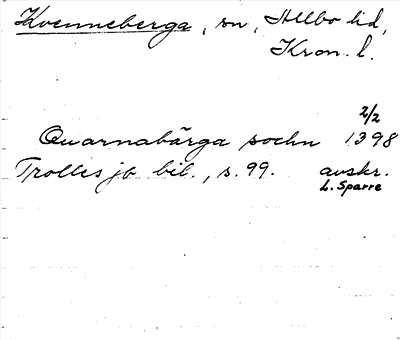 Kvenneberga, sn, Allbo hd,
Kron. l.
2/2
Quarnabärga sochn 1398
Trolles jb bil., s. 99. avskr.
L. Sparre